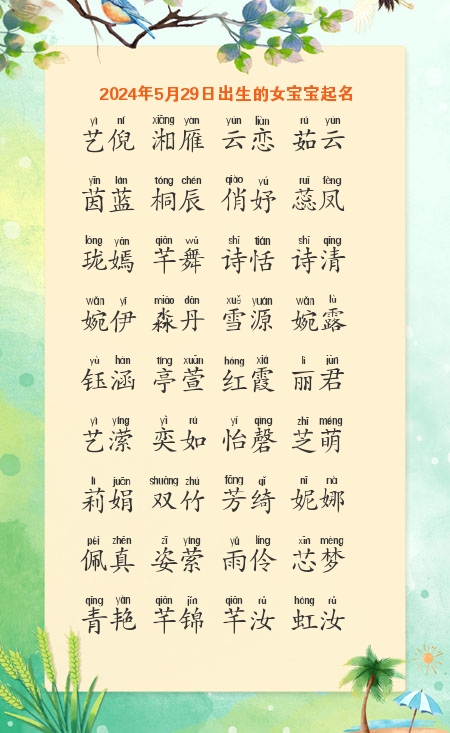 2024年5月29日出生的女宝宝起名
yì ní xiāng yàn yún liàn rú yún
艺倪 湘雁 云恋 茹云
yīn lán tóng chén qiào yú ruǐ fèng
茵蓝 桐辰 俏妤 蕊凤
lóng yān qiān wǔ shī tián shī qīng
珑嫣 芊舞 诗恬 诗清
wǎn yī miǎo dān xuě yuán wǎn lù
婉伊 淼丹 雪源 婉露
yù hán tíng xuān hóng xiá lì jūn
钰涵 亭萱 红霞 丽君
yì yíng yì rú yí qìng zhī méng
艺潆 奕如 怡磬 芝萌
lì juān shuāng zhú fāng qǐ nī nà
莉娟 双竹 芳绮 妮娜
pèi zhēn zī yíng yǔ líng xīn mèng
佩真 姿萦 雨伶 芯梦
qīng yàn qiān jǐn qiān rǔ hóng rǔ
青艳 芊锦 芊汝 虹汝